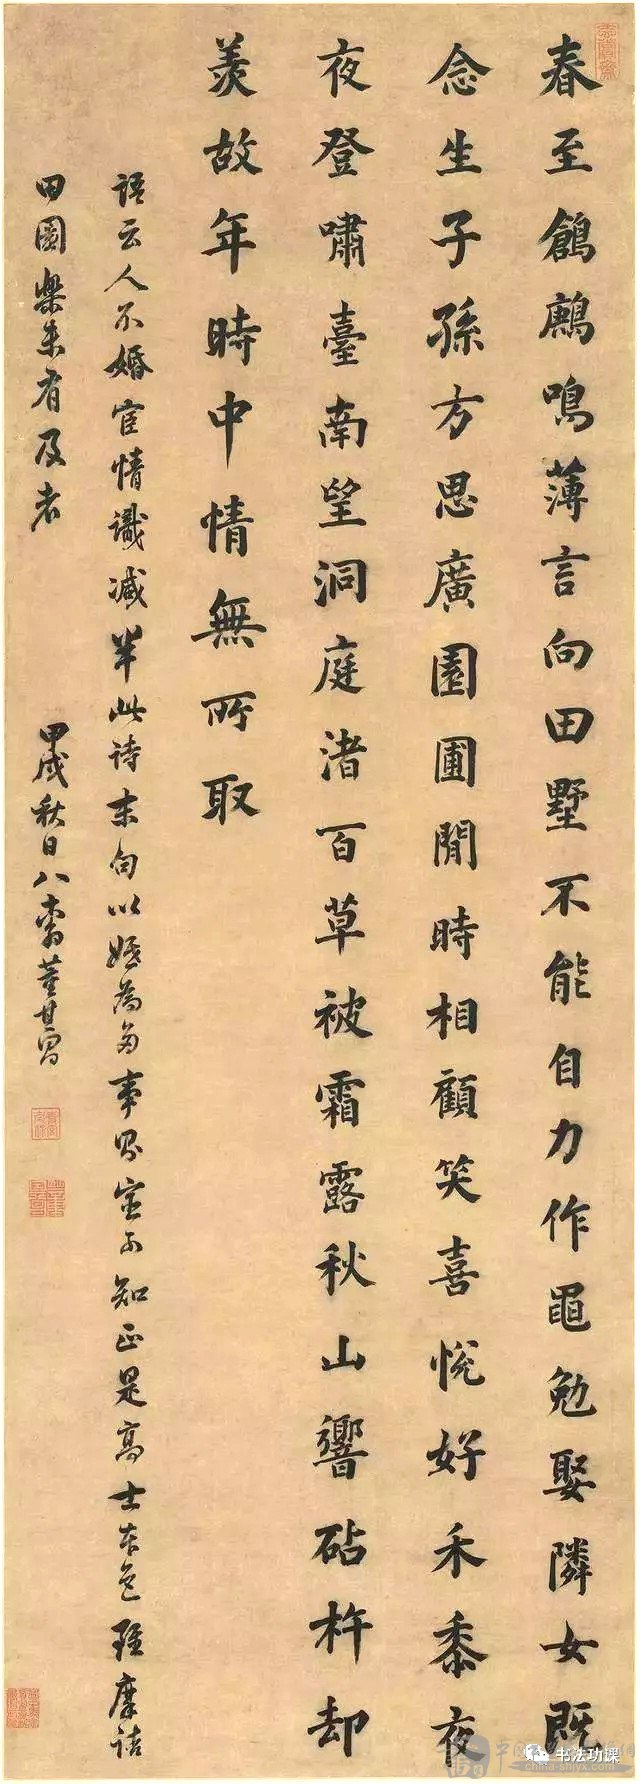 春至鶬鶊鳴薄言向田墅不能自力作黽勉娶隣女既
念生子孫方思廣園圃閒時相顧笑喜悅好禾黍夜
夜登嘯臺南望洞庭渚百草被霜露秋山響砧杵却
羨故年時中情無所取
語云人不婚宦情識減半此詩末句以婚為多事室不知正是高士本色雖摩詰
田園樂未有及者
甲戌秋日八董其昌
书法功课